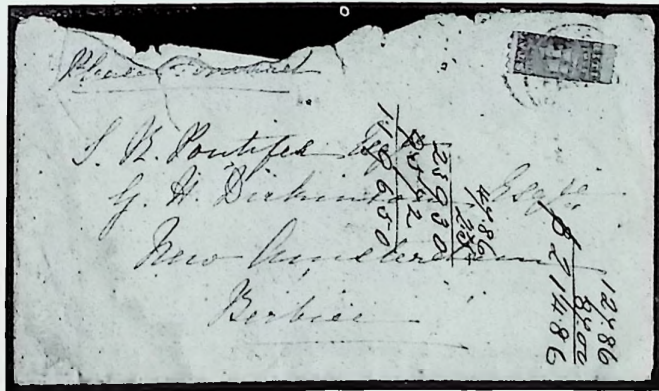 Please Forward
S. R. Pontifex Esq
G. H. Dickinson Esqre
New Amsterdam
Berbice
25930
11 9650
47.86
127.86
87.00
$214.86